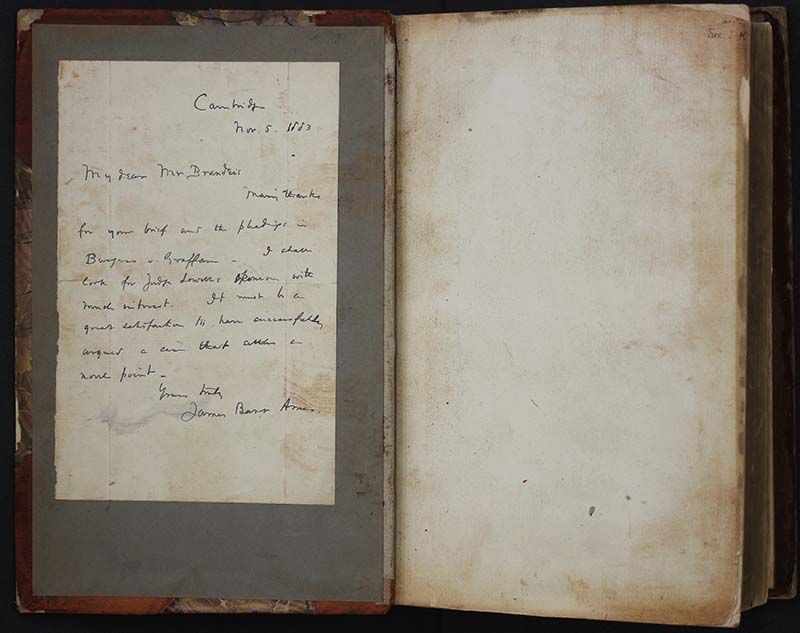 Cambridge
Nov. 5. 1883
My dear Mr Brandeis
Many thanks
for your brief and the pleadings in
Burgess v. Graffam – I shall
look for Judge Lowell's opinion with
much interest. It must be a
great satisfaction to have successfully
argued a case that settles a
novel point –
Yours truly
James Barr Ames.